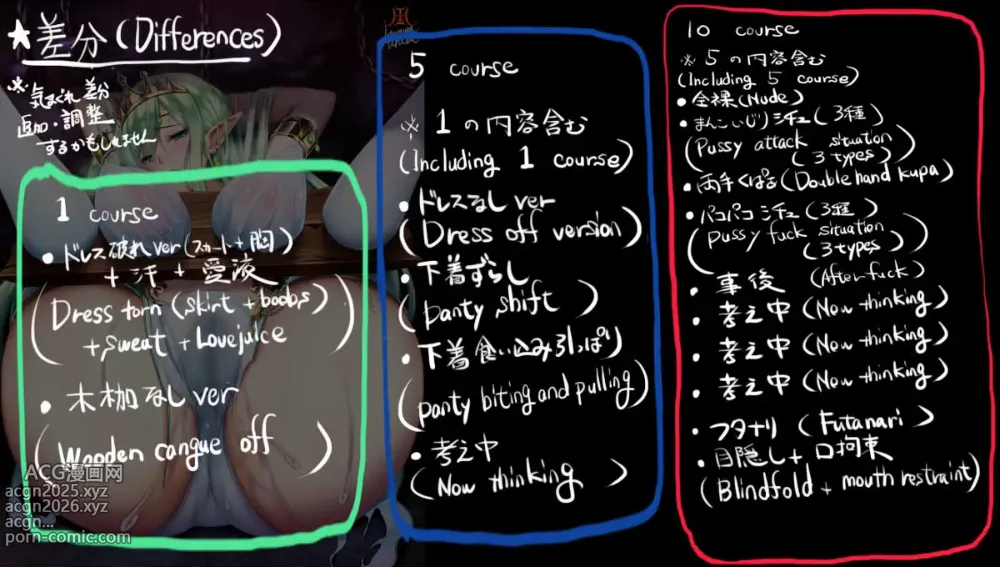 ★差分(Differences)
※気まぐれ差分
追加・調整
するかもしれません
1 course
・ドレス破れver(スカート+胸)
+汗+愛液
(Dress torn (skirt + boobs)
+sweat +Lovejuice)
・木枷なしver
(Wooden cangue off)
5 course
※1の内容含む
(Including 1 course)
・ドレスなしver
(Dress off version)
・下着ずらし
(panty shift)
・下着食い込み引っぱり
(panty biting and pulling)
・考え中
(Now thinking)
10 course
※5の内容含む
(Including 5 course)
・全裸(Nude)
・まんこいじりシチュ(3種)
(Pussy attack situation
(3 types))
・両手くぱぁ(Double hand kupa)
・パコパコシチュ(3種)
(Pussy fuck situation
(3 types))
・事後 (After fuck)
・考え中 (Now thinking)
・考え中 (Now thinking)
・考え中 (Now thinking)
・フタナリ (Futanari)
・目隠し+口拘束
(Blindfold + mouth restraint)
ACG漫画网
acgn2025.xyz
acgn2026.xyz
acgn...
porn-comic.com